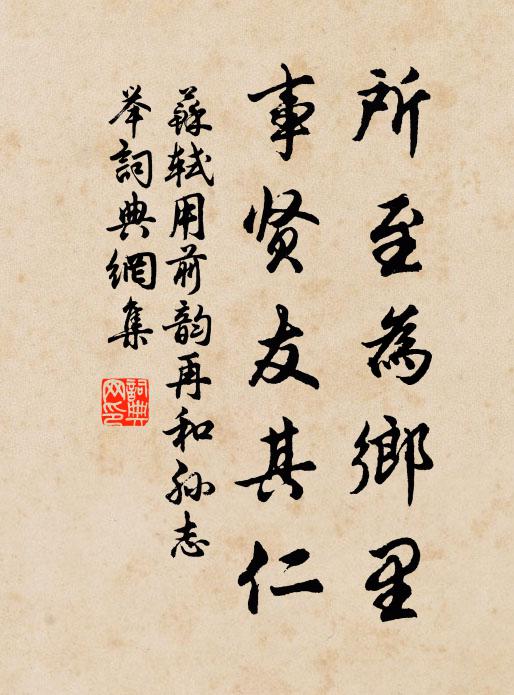 所至為鄉里
事贤友其仁
蘇轼用前韵再和孙志
举詞典網集
詞典網印